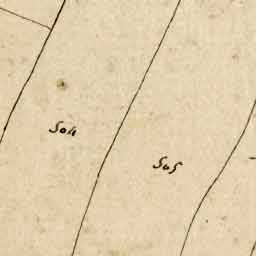 504
505